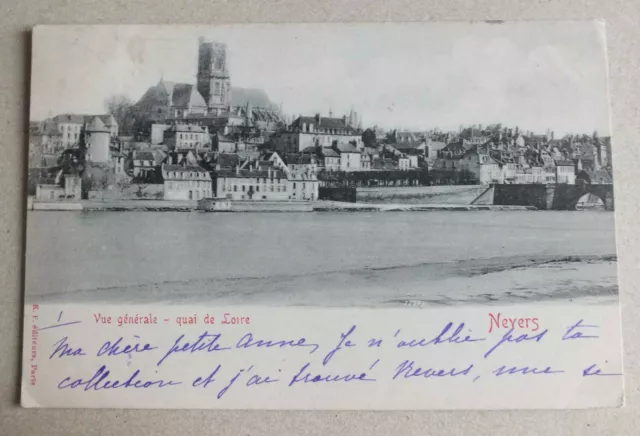 Vue générale - quai de Loire
Neyers
Ma chère petite Anne, Je n'oublie pas ta
collection et j'ai trouvé Nevers, une si
K. F. éditeurs, Paris